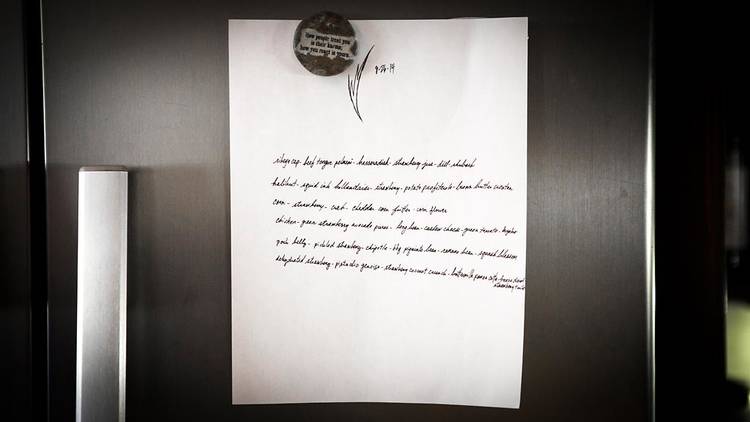 How people treat you
is their karma;
how you react is yours.
9-26-14
ribeye cap - beef tongue pelmeni - horseradish - strawberry jus - dill - rhubarb
halibut - squid ink hollandaise - strawberry - potato profiterole - brown butter
corn - strawberry - curd - cheddar corn fritter - corn flower
chicken - green strawberry avocado puree - long bean - green tomato
pork belly - pickled strawberry - chipotle - bean - romano bean - squash blossom
dehydrated strawberry - pistachio - strawberry coconut - buttermilk panna cotta - freeze dried
strawberry